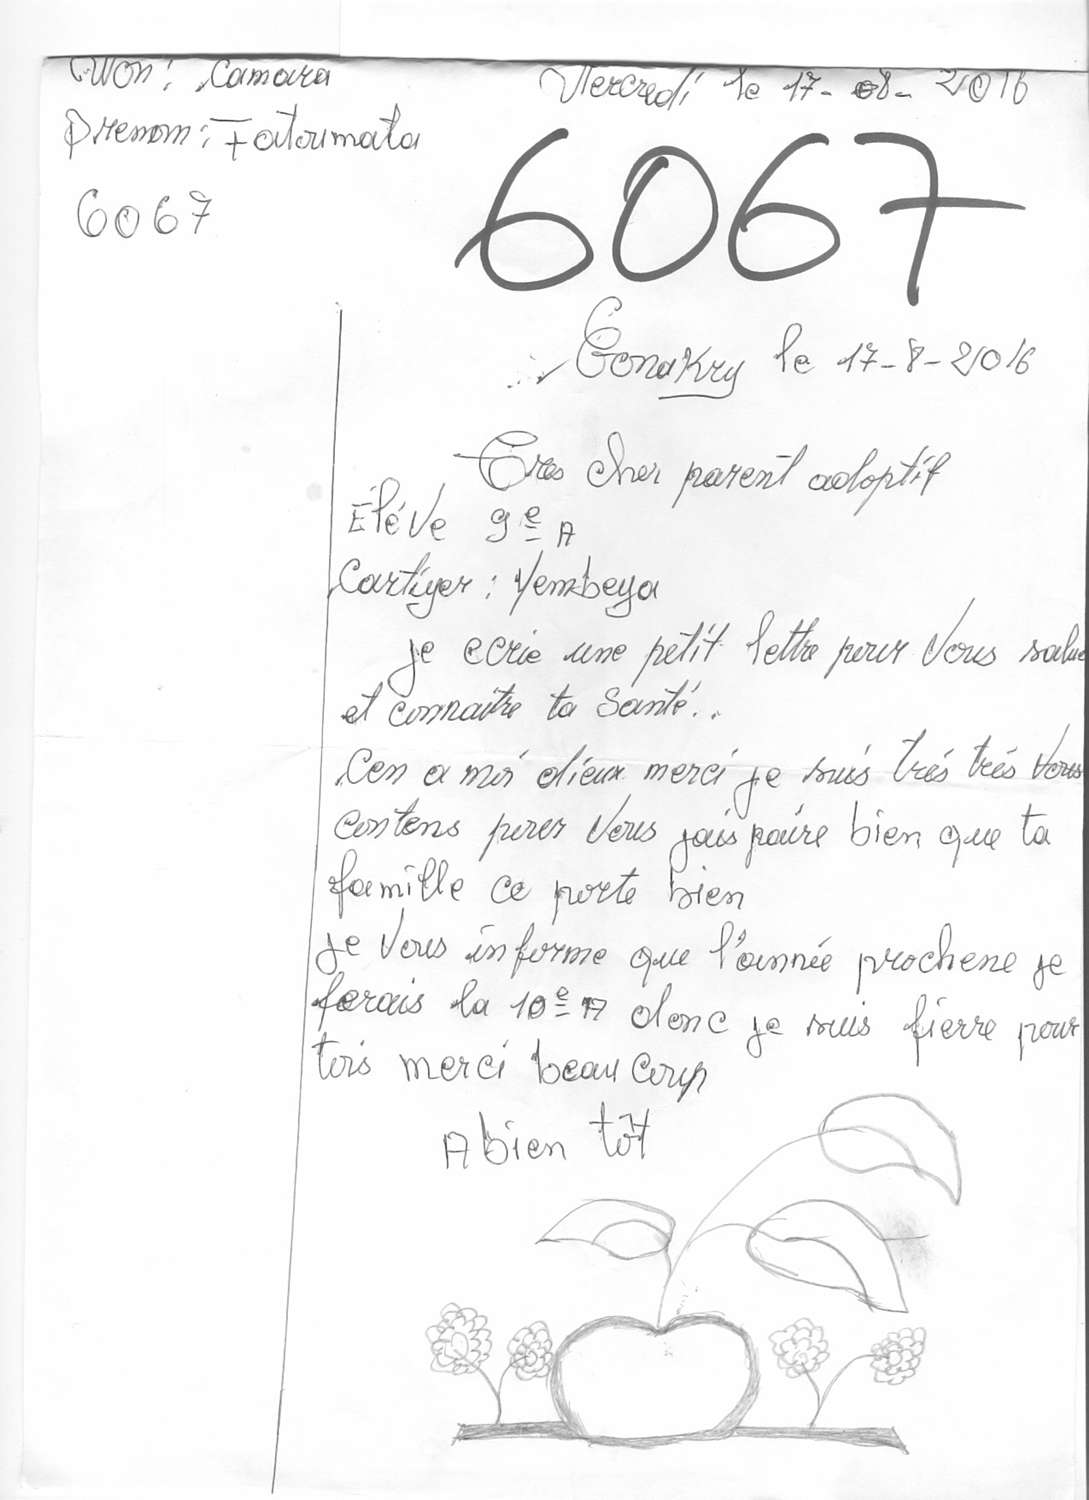 Nom : Camara
Mercredi le 17-08-2016
Prenom : Fatoumata
6067
6067
Conakry le 17-8-2016
Tres cher parent adoptif
Élève 9e A
Cartiyer : Yembeya
je ecrie une petit lettre pour Vous salue
et connaitre ta Santé..
Cen a moi dieux merci je suis trés trés Vous
contens pour Vous jais paire bien que ta
famille ce porte bien
je Vous informe que l'année prochene je
ferais la 10e A donc je suis fierre pour
tois merci beau coup
A bien tôt